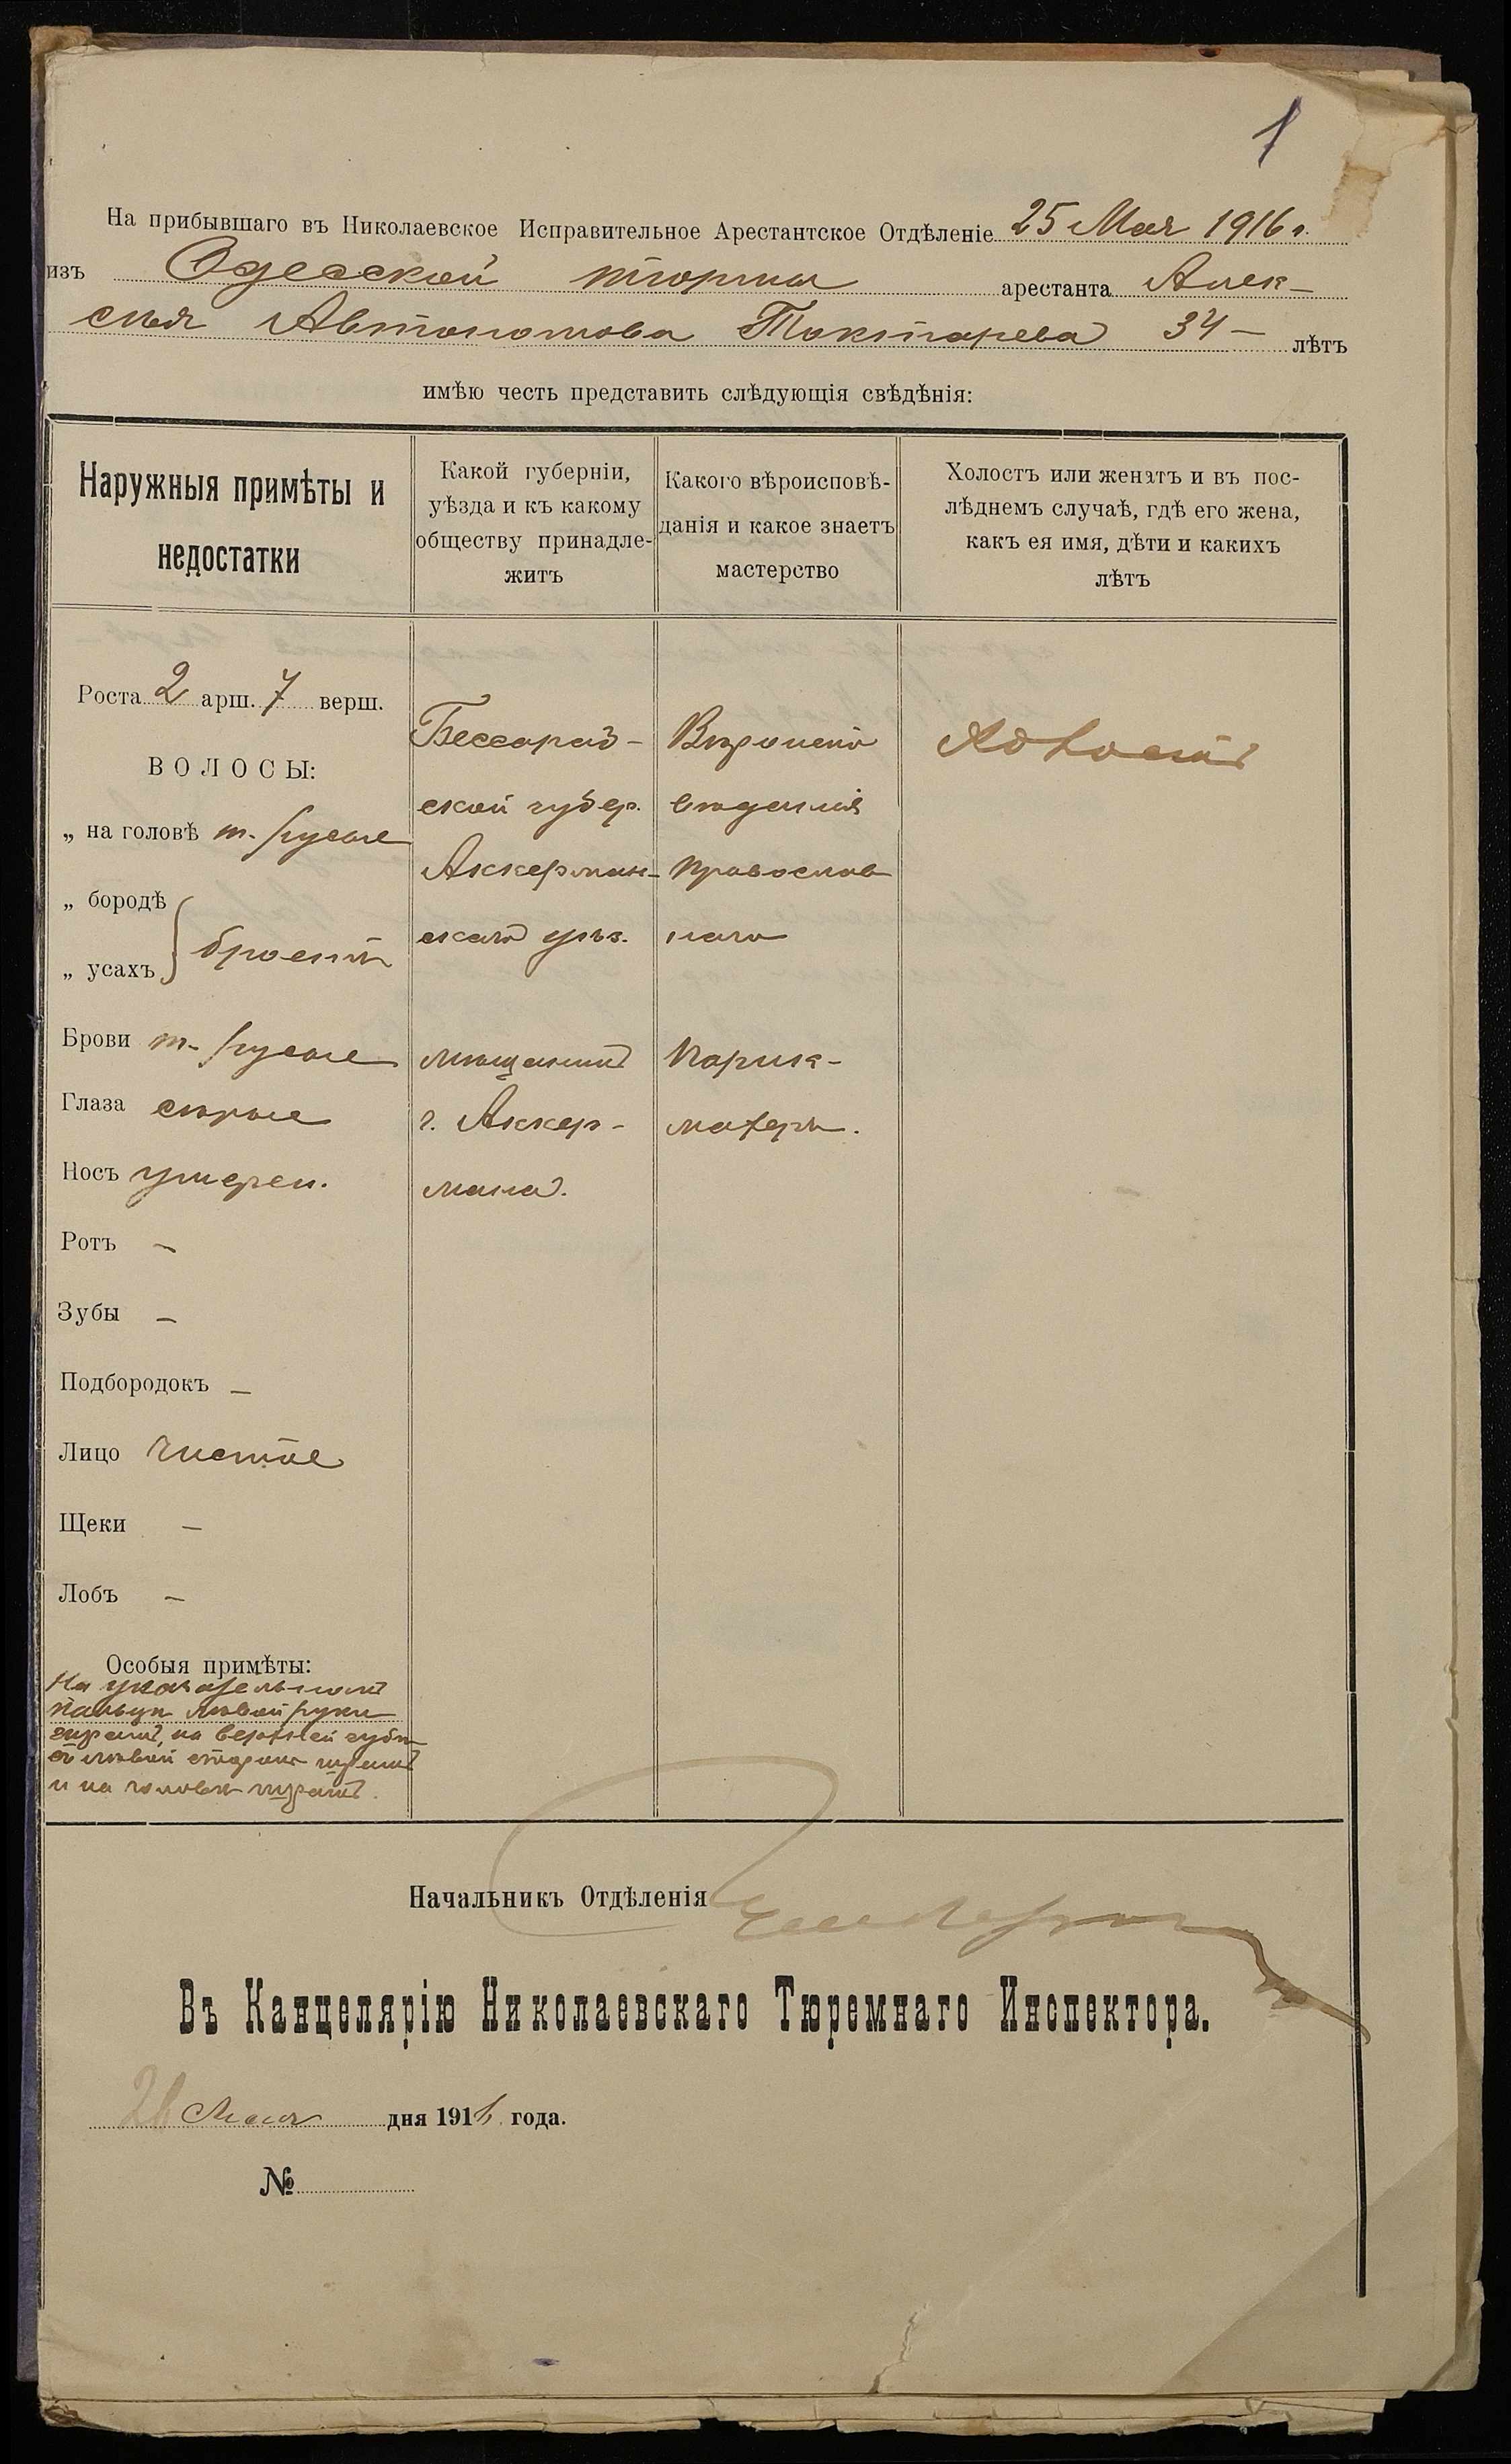 1
На прибывшаго въ Николаевское Исправительное Арестантское Отдѣленіе 25 Мая 1916 г.
изъ Одесской тюрмы арестанта Алек-
сѣя Автономова Токтарева 34 – лѣтъ
имѣю честь представить слѣдующія свѣдѣнія:
Наружныя примѣты и
недостатки
Какой губерніи,
уѣзда и къ какому
обществу принадле-
житъ
Какого вѣроисповѣ-
данія и какое знаетъ
мастерство
Холостъ или женатъ и въ пос-
лѣднемъ случаѣ, гдѣ его жена,
какъ ея имя, дѣти и какихъ
лѣтъ
Роста 2 арш. 7 верш.
ВОЛОСЫ:
„ на головѣ т. русые
„ бородѣ
„ усахъ
броетъ
Брови т- русые
Глаза сѣрые
Носъ умерен.
Ротъ –
Зубы –
Подбородокъ –
Лицо чистое
Щеки –
Лобъ –
Особыя примѣты:
На указательномъ
пальцѣ лѣвой руки
шрамъ, на верхней губѣ
съ лѣвой стороны шрамъ
и на головѣ шрамъ.
Бессараб-
ской губер.
Аккерман-
скаго уѣз.
мѣщанинъ
г. Аккер-
мана.
Вѣроиспо
вѣданія
православ
наго
Парик-
махеръ.
Холостъ
Начальникъ Отдѣленія
Въ Канцелярію Николаевскаго Тюремнаго Инспектора.
26 Мая дня 1916 года.
№